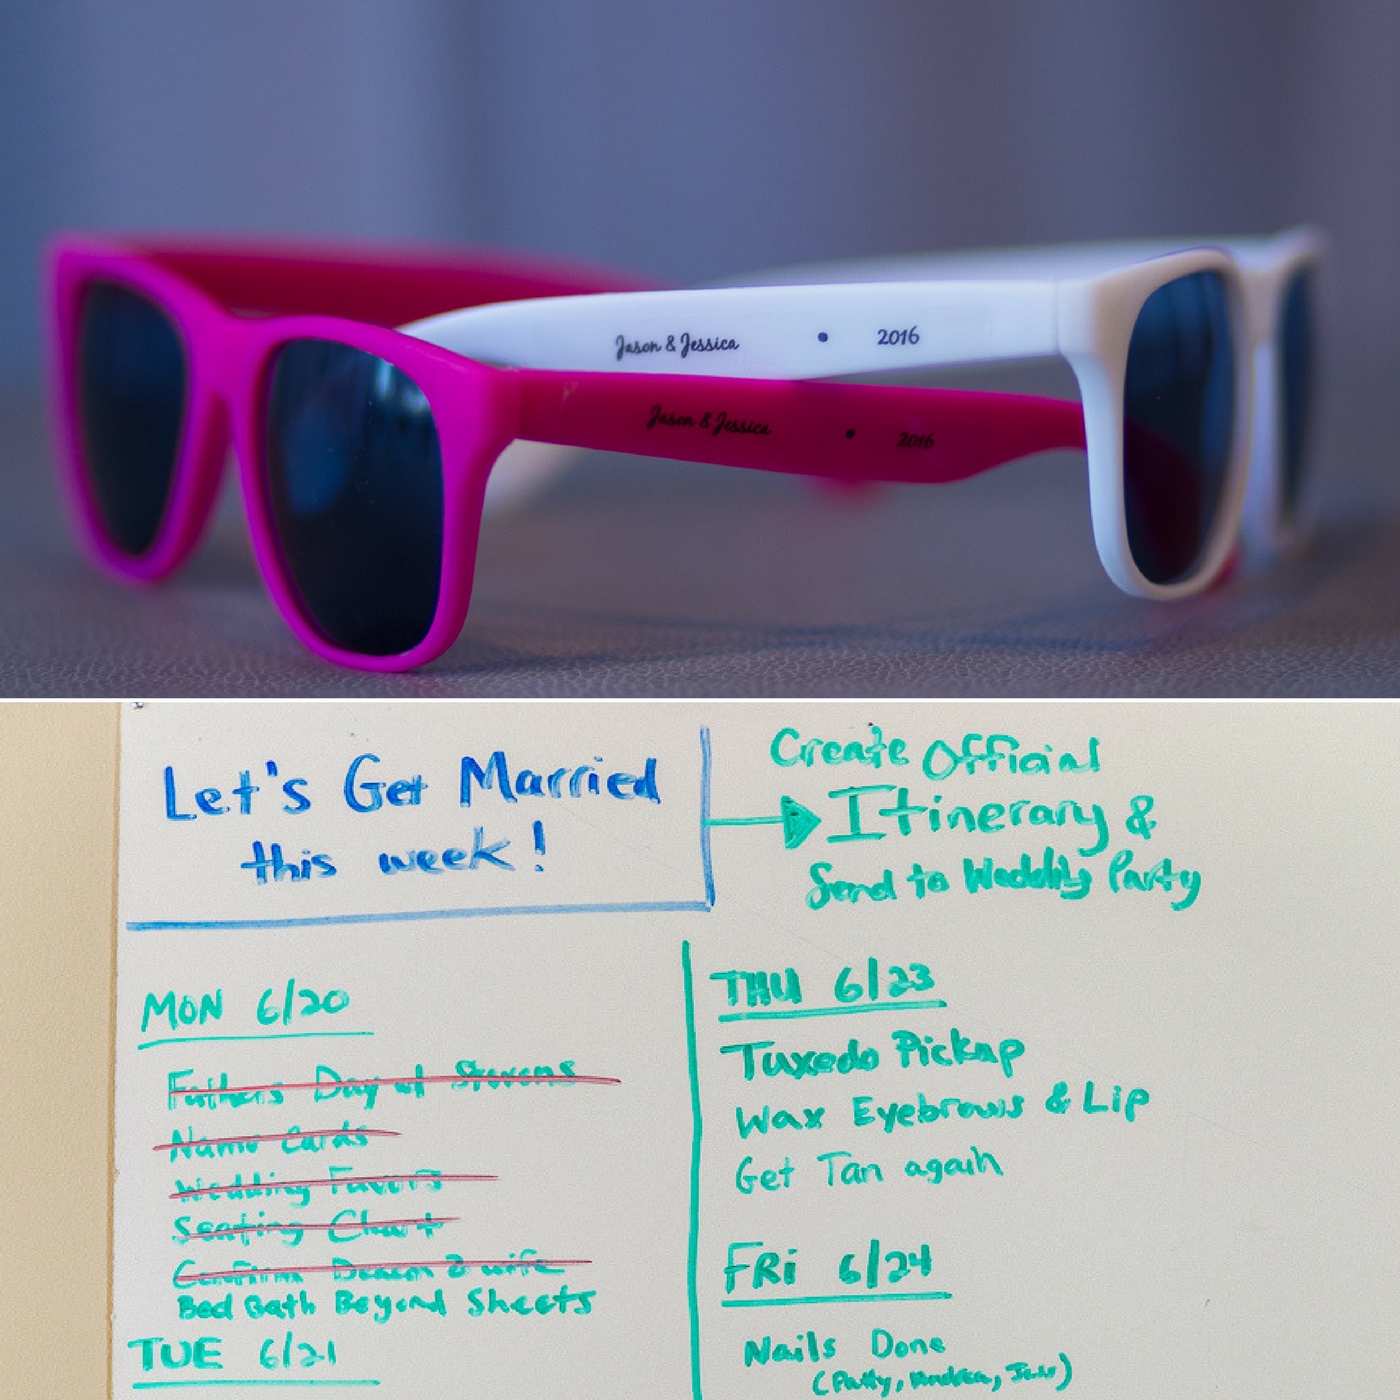 Jason & Jessica • 2016
Jason & Jessica • 2016
Let's Get Married
this week!
Create Official
Itinerary &
Send to Wedding Party
MON 6/20
Fathers Day at Stevens
Name Cards
Wedding Favors
Seating Chart
Confirm Deacon & wife
Bed Bath Beyond Sheets
TUE 6/21
THU 6/23
Tuxedo Pickup
Wax Eyebrows & Lip
Get Tan again
FRI 6/24
Nails Done
(Patty, Andrea,